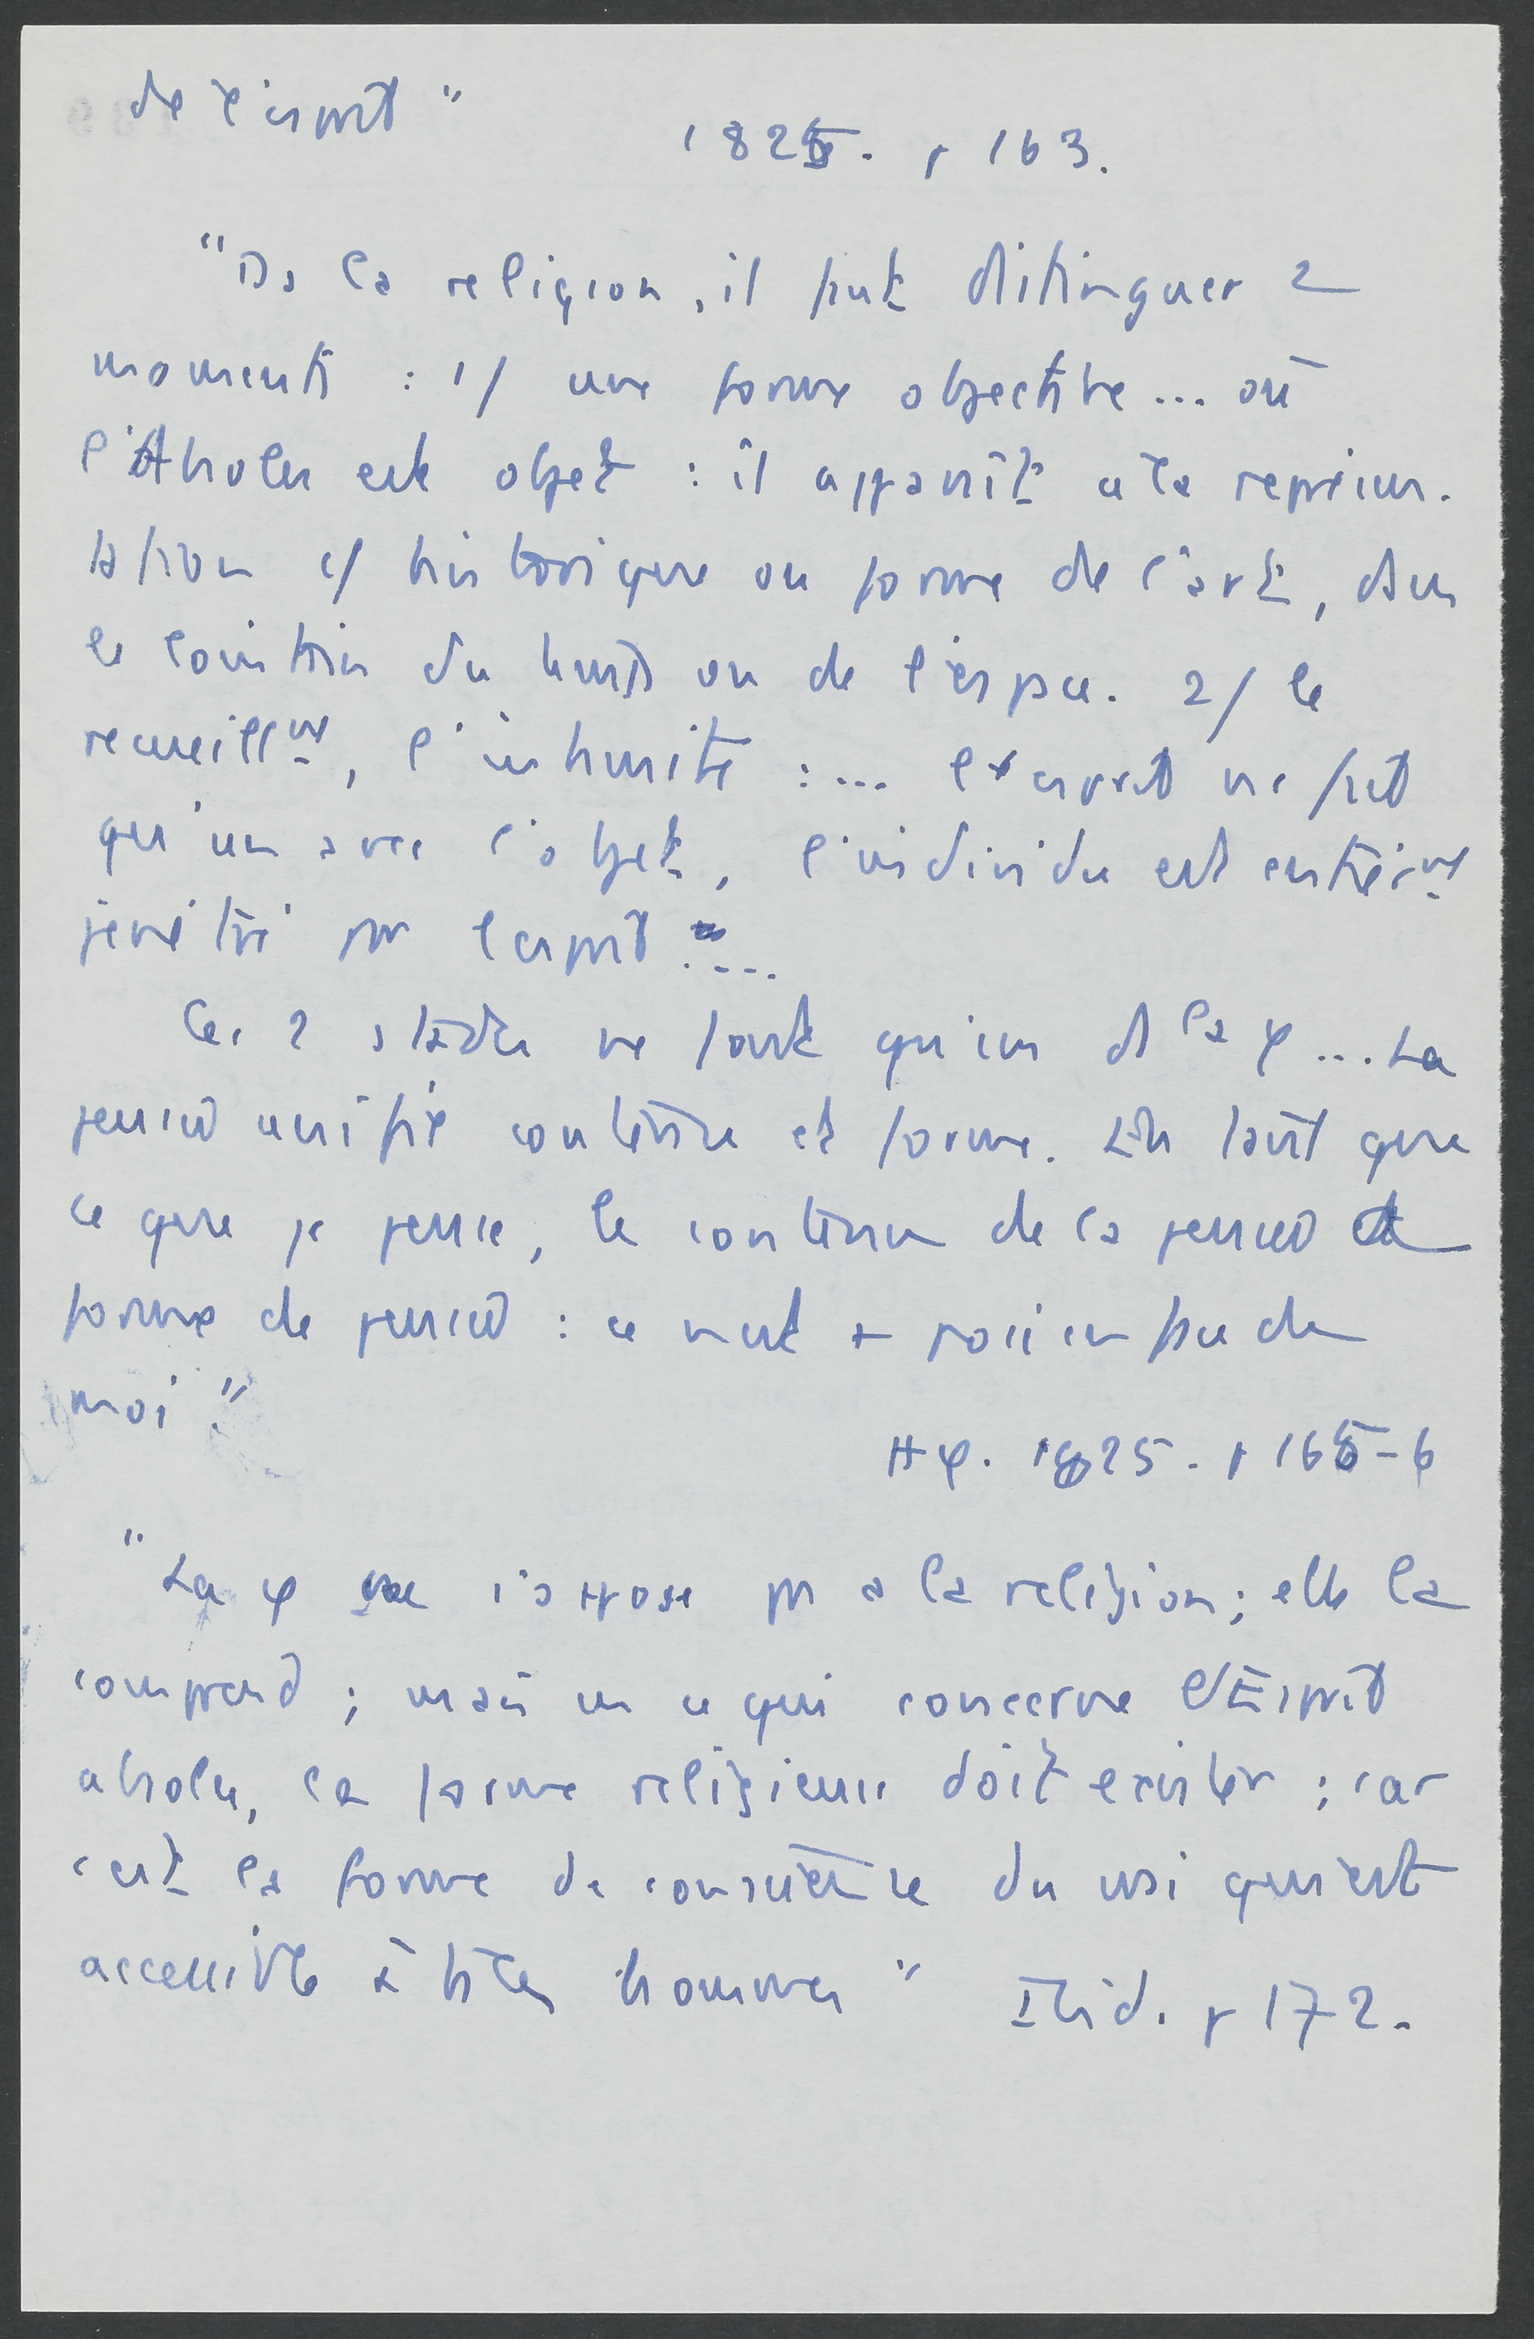 de l'esprit"
1825. p 163.
"Ds la religion, il faut distinguer 2
moments : 1/ une forme objective... où
l'Absolu est objet : il apparaît a la représen-
tation c/ historique ou forme de l'art, dans
le lointain du temps ou de l'espace. 2/ le
recueillmt, l'intimité : ... l'esprit ne fait
qu'un avec l'objet, l'individu est entièrmt
pénétré par l'esprit ....
Ces 2 stades ne font qu'un ds la φ... La
pensée unifie contenu et forme. En tant que
ce que je pense, le contenu de la pensée est
forme de pensée : ce n'est + posé en face de
moi."
Hφ. 1825. p 165-6
"La φ ne s'oppose pas a la religion; elle la
comprend; mais en ce qui concerne l'Esprit
absolu, la forme religieuse doit exister; car
c'est la forme de conscience du vrai qui est
accessible à ts les hommes" Ibid. p 172.